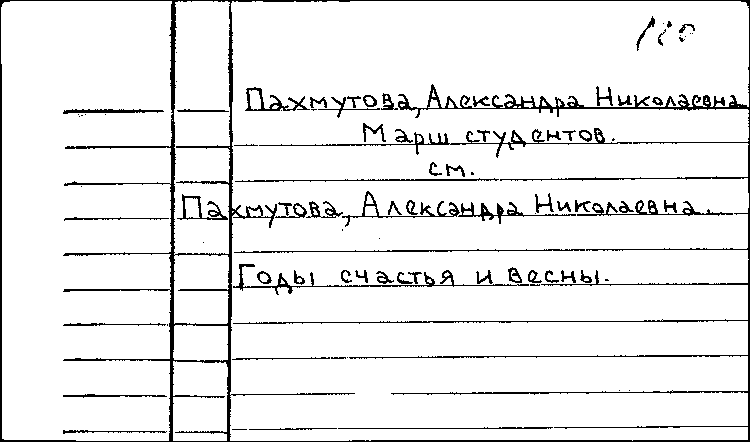 120
Пахмутова, Александра Николаевна
Марш студентов.
см.
Пахмутова, Александра Николаевна.
Годы счастья и весны.